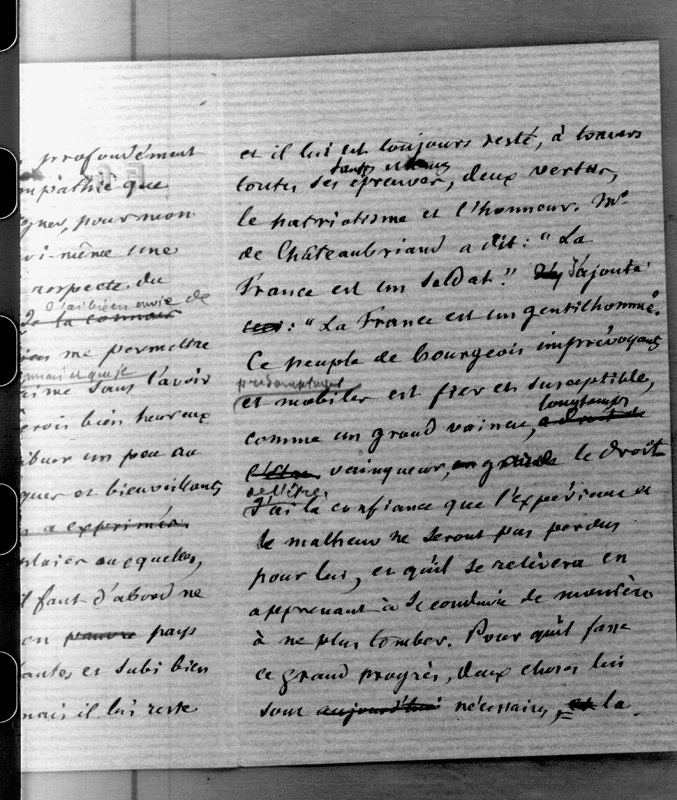 profondément
mpathie que
gner, pour mon
vi-même une
respecte, du
J'ai bien envie de
De la connais
me permettre
jamais et que je
aime sans l'avoir
erois bien heureux
ibuer un peu au
gues et bienveillants
a exprimés.
plaies auxquelles,
il faut d'abord ne
on pauvre pays
antes et subi bien
mais il lui reste
et il lui est toujours resté, à travers
toutes ses épreuves, deux vertus,
le patriotisme et l'honneur. Mr.
de Châteaubriand a dit: "La
France est un soldat." J'ajoute
: "La France est un gentilhomme."
Ce peuple de bourgeois imprévoyants
présomptueux
et mobiles est fier et susceptible,
longtemps
comme un grand vaincu, a droit
l'être vainqueur, le droit
de l'être.
J'ai la confiance que l'expérience et
le malheur ne seront pas perdus
pour lui, et qu'il se relèvera en
apprenant à se conduire de manière
à ne plus tomber. Pour qu'il fasse
ce grand progrès, deux choses lui
sont aujourd'hui nécessaires, et la